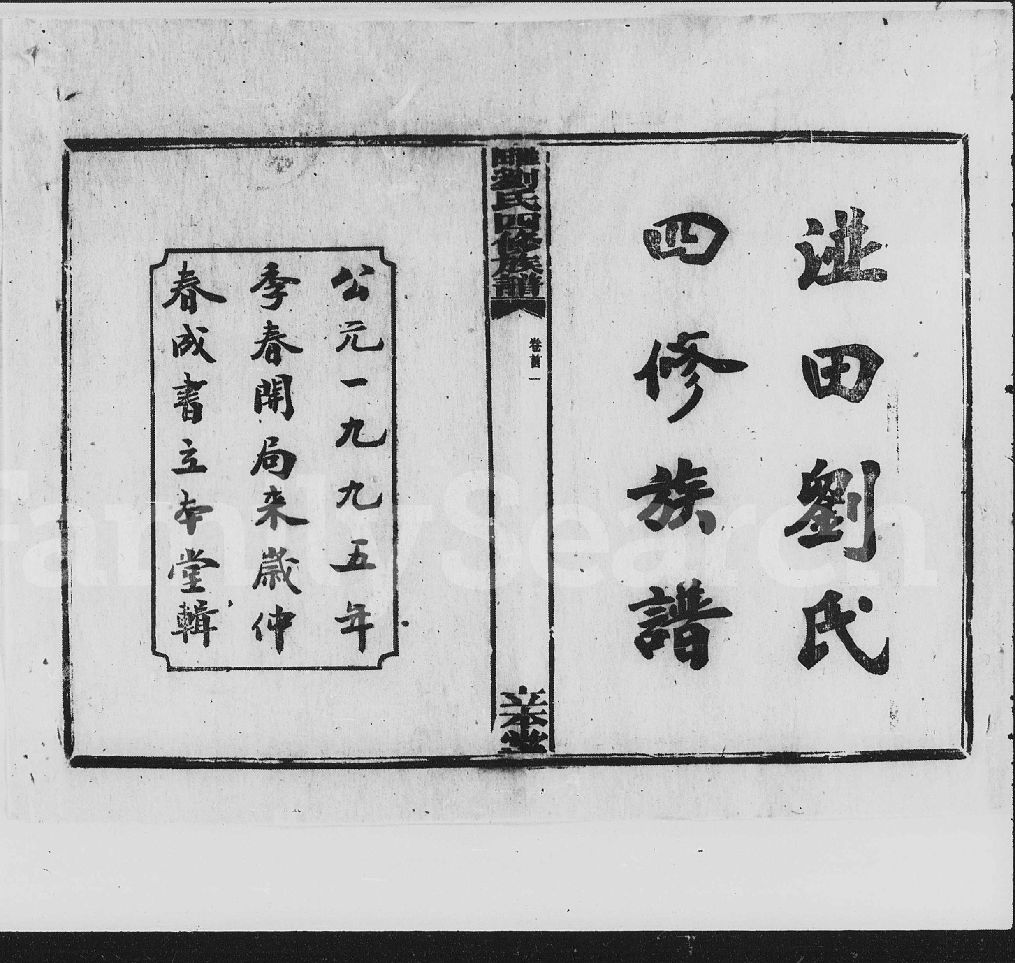 田劉氏
四修族譜
劉氏四修族譜
卷首一
立本堂
公元一九九五年
季春開局来歲仲
春成書立本堂輯
FamilySearch